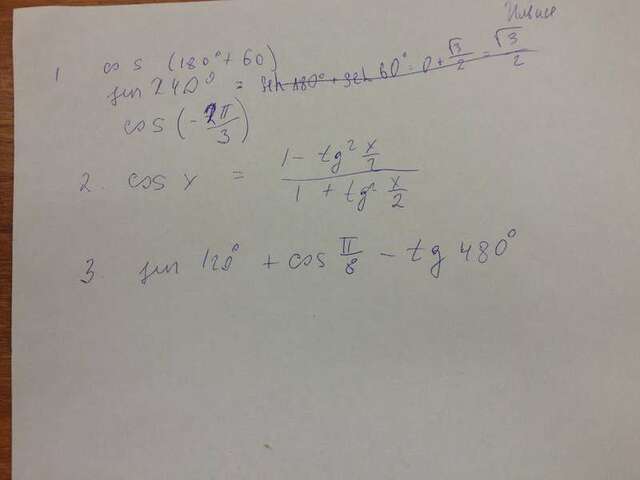 1 cos (180° + 60)
sin 240° = sin 180° + sin 60° = 0 + √3/2 = √3/2
cos (-2π/3)
2. cos x = (1 - tg² x/2)/(1 + tg² x/2)
3. sin 120° + cos π/8 - tg 480°